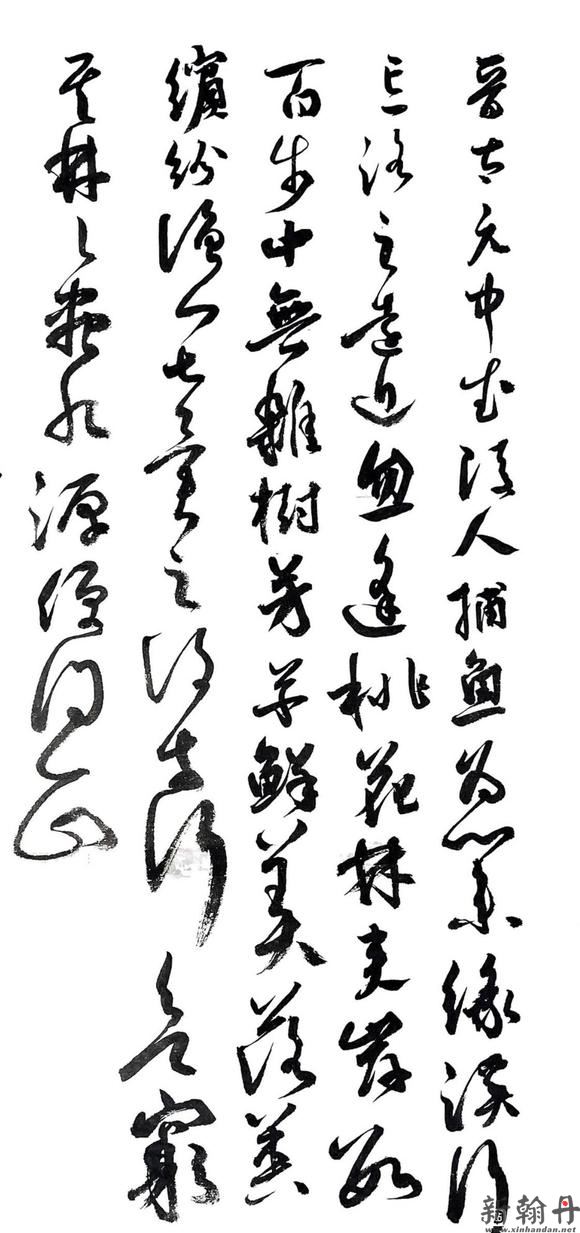 晉太元中武陵人捕魚为業緣溪行
忘路之遠近忽逢桃花林夾岸數
百步中無雜樹芳草鮮美落英
繽紛漁人甚異之復前行欲窮
其林々盡水源便得一山
新翰丹
www.xinhandan.net